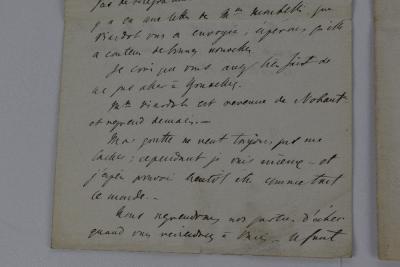 pas de
y a eu une lettre de Mme que
Viardot vous a envoyée ; espérons qu'elle
a contenu de bonnes nouvelles.
Je crois que vous avez bien fait de
ne pas aller à
Mme Viardot est revenue de Nohant
et demain. —
Ma goutte ne veut toujours pas me
lâcher ; cependant je vais mieux — et
j'espère pouvoir bientôt être comme tout
le monde. —
Nous reprendrons nos parties d'échecs
quand vous reviendrez à Paris. — Il faut